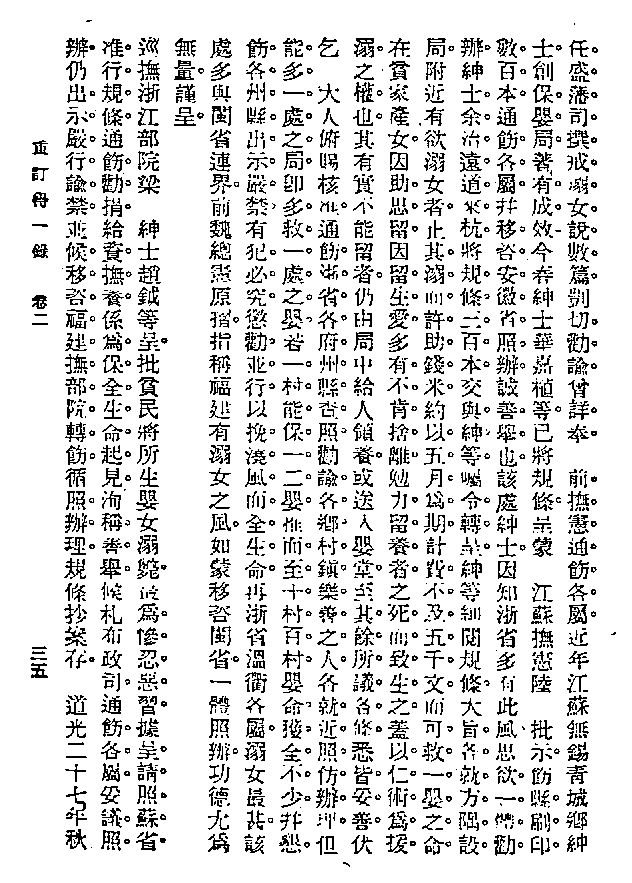 任。盛藩司撰戒溺女說數篇。剴切勸諭。曾詳奉　前撫憲通飭各屬。近年江蘇無錫青城鄉紳
士。創保嬰局。著有成效。今春紳士華嘉植等。已將規條呈蒙　江蘇撫憲陸　批示。飭縣刷印
數百本。通飭各屬。幷移咨安徽省。照辦。誠善舉也。該處紳士。因知浙省多有此風。思欲一體勸
辦。紳士余治遠道來杭。將規條二百本交與紳等。囑令轉呈。紳等細閱規條大旨。各就方隅設
局。附近有欲溺女者。止其溺而許助錢米。約以五月爲期。計費不及五千文。而可救一嬰之命。
在貧家產女。因助思留。因留生愛。多有不肯捨離。勉力留養者。之死而致生之。蓋以仁術爲援
溺之權也。其有實不能留者。仍由局中給人領養。或送入嬰堂。至其餘所議各條。悉皆妥善。伏
乞　大人俯賜核准。通飭浙省各府州縣。查照勸諭。各鄉村鎮樂善之人。各就近照仿辦理。但
能多一處之局。卽多救一處之嬰。若一村能保一二嬰。推而至十村百村。嬰命獲全不少。幷懇
飭各州縣出示嚴禁。有犯必究。懲勸並行。以挽澆風。而全生命。再浙省溫衢各屬。溺女最甚。該
處多與閩省連界。前魏總憲原摺。指稱福建有溺女之風。如蒙移咨閩省。一體照辦。功德尤爲
無量。謹呈。
巡撫浙江部院梁　紳士趙鉞等呈批。貧民將所生嬰女溺斃。最爲慘忍惡習。據呈請照蘇省。
准行規條。通飭勸捐給資撫養。係爲保全生命起見。洵稱善舉。候札布政司通飭各屬妥議照
辦。仍出示嚴行諭禁。並候移咨福建撫部院。轉飭循照辦理。規條抄案存。　道光二十七年秋
重訂毋一錄　卷二　三五